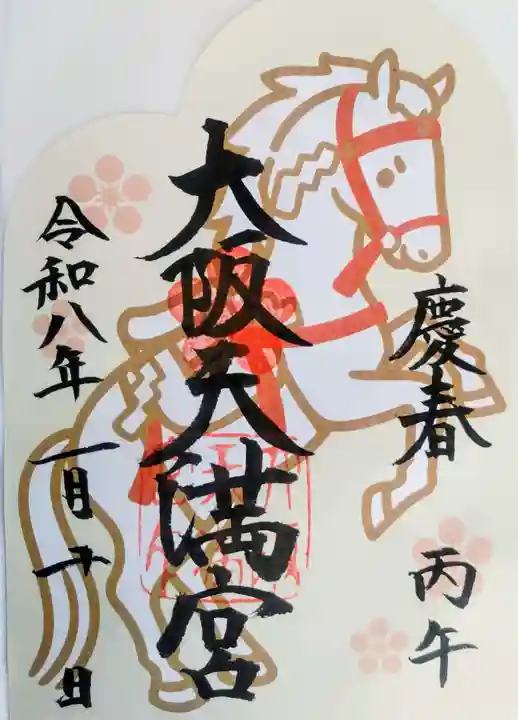 慶春
丙午
大阪天満宮
令和八年一月十日